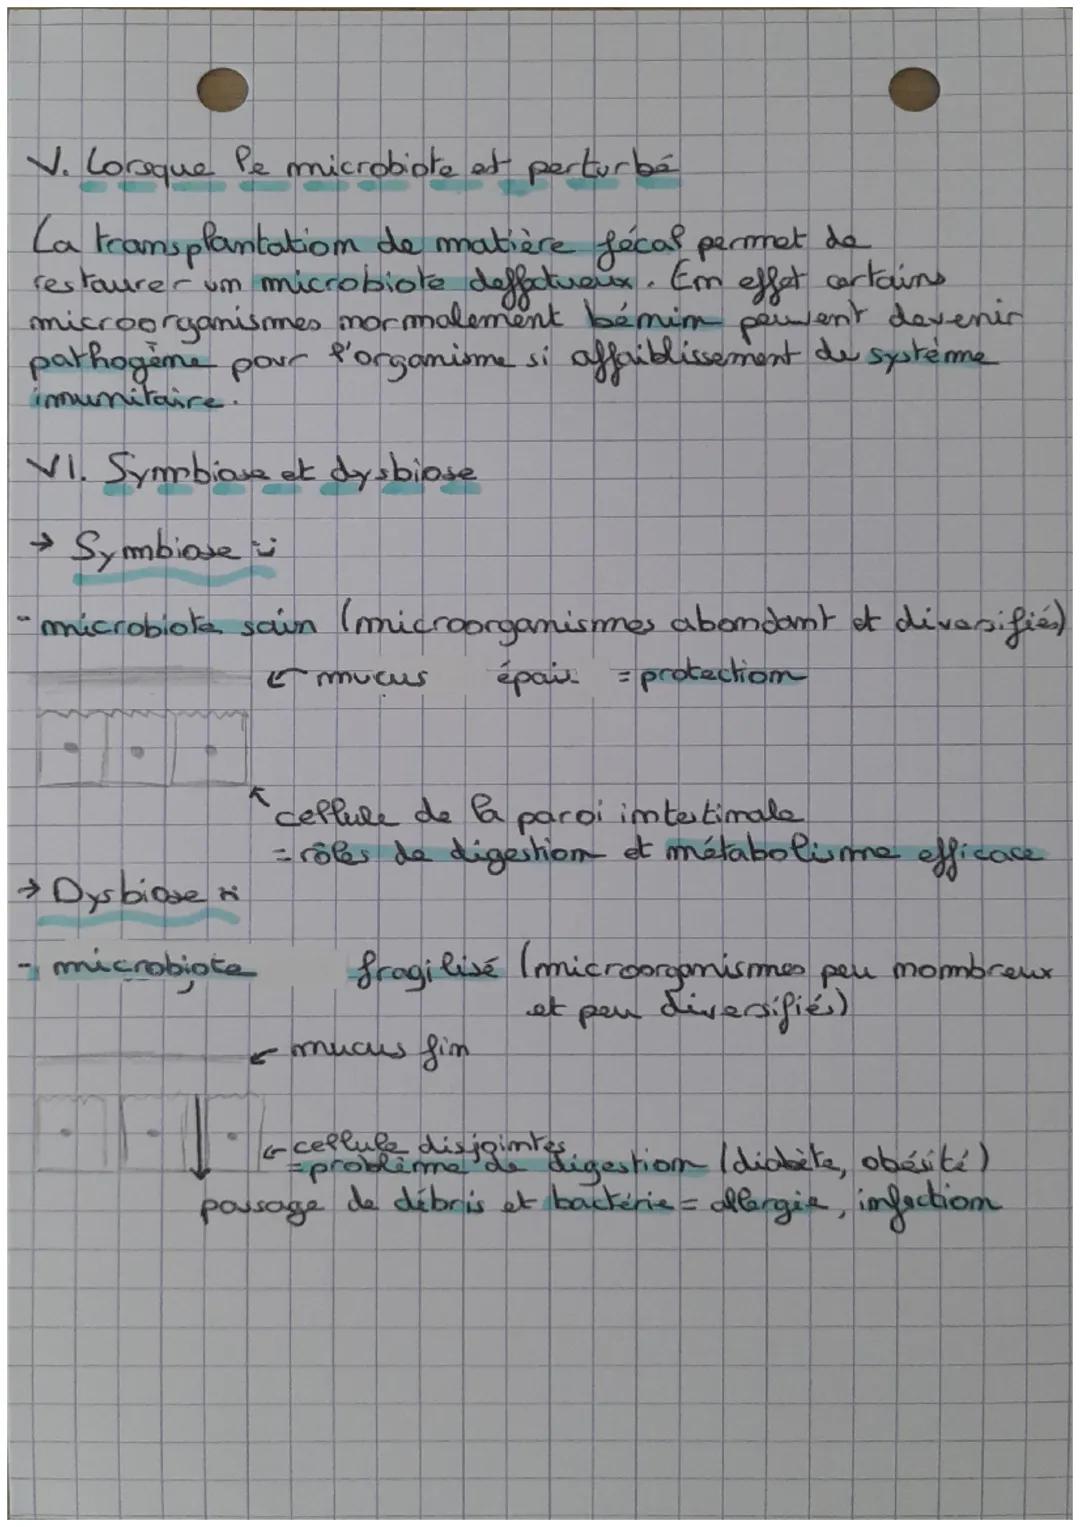 V. Lorsque le microbiote est perturbé
La transplantation de matière fécal permet de
restaurer un microbiote deffectueux. En effet certains
microorganismes normalement bénin peuvent devenir
pathogème pour l'organisme si affaiblissement du systéme
imunitaire.
VI. Symbiose et dysbiose
→ Symbiose :
- microbiote sain (microorganismes abondant et diversifiés)
← mucus épais = protection
↖ cellule de la paroi intestinale
= rôles de digestion et métabolisme efficace
→ Dysbiose :
- microbiote fragilisé (microorganismes peu nombreux
et peu diversifiés)
← mucus fin
← cellule disjointes
= problème de digestion (diabète, obésité)
passage de débris et bactérie = allergie, infection